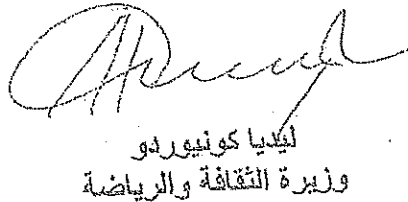 ليديا كونيوردو
وزيرة الثقافة والرياضة